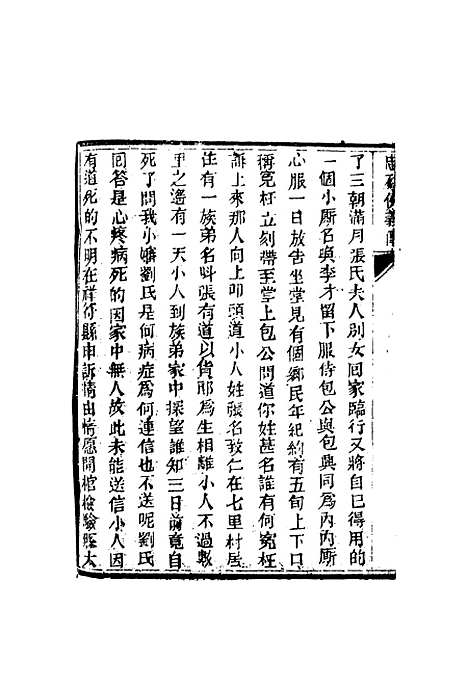 忠烈俠義傳
了三朝滿月張氏夫人別女回家臨行又將自己得用的
一個小厮名與李才留下服侍包公與包興同為內內厮
心服一日放告坐堂見有個鄉民年紀約有五旬上下口
稱冤枉立刻帶至堂上包公問道你姓甚名誰有何冤枉
訴上來那人向上叩頭道小人姓張名致仁在七里村居
住有一族弟名叫張有道以貨郎為生相離小人不過數
里之遙有一天小人到族弟家中探望誰知三日前竟自
死了問我小嬸劉氏是何病症為何連信也不送呢劉氏
回答是心疼病死的因家中無人故此未能送信小人因
有道死的不明在祥符縣申訴情由情愿開棺檢驗縣太